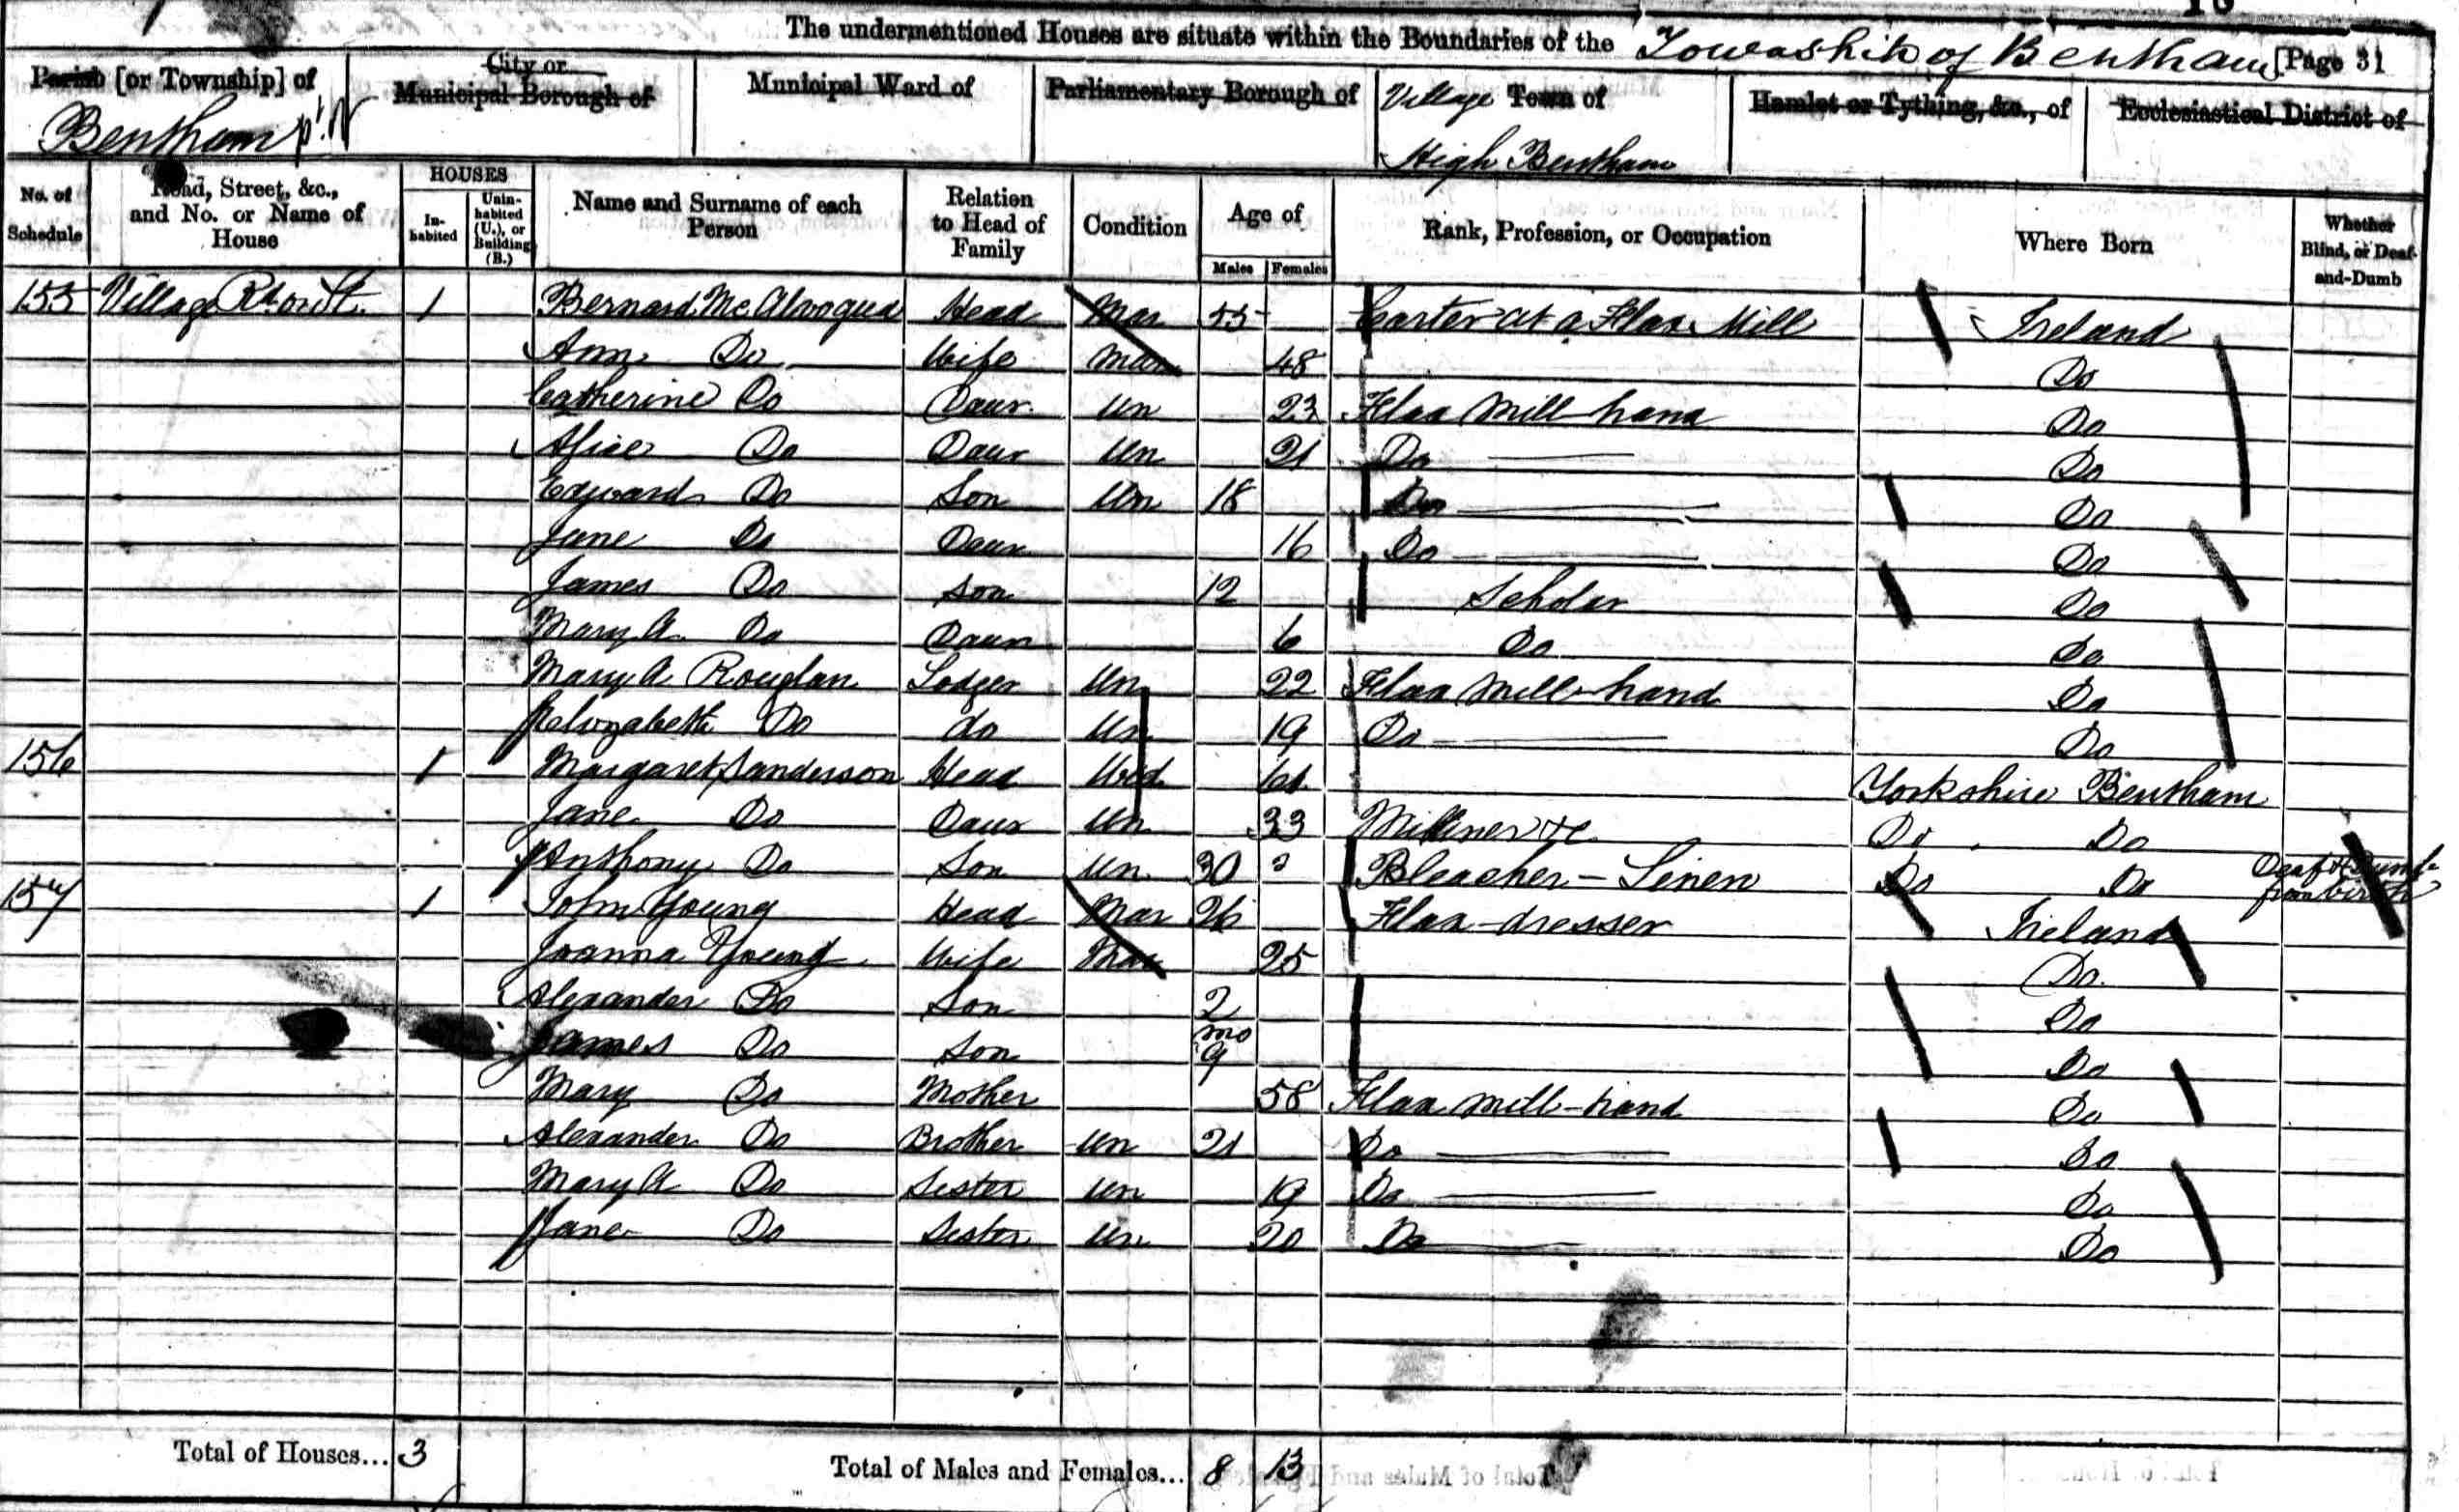 The undermentioned Houses are situate within the Boundaries of the Township of Bentham [Page 31
Parish [or Township] of Bentham
City or Municipal Borough of
Municipal Ward of
Parliamentary Borough of
Village Town of High Bentham
Hamlet or Tything, &c., of
Ecclesiastical District of
No. of Schedule
Road, Street, &c., and No. or Name of House
HOUSES
In-habited
Unin-habited (U.), or Building (B.)
Name and Surname of each Person
Relation to Head of Family
Condition
Age of
Males Females
Rank, Profession, or Occupation
Where Born
Whether Blind, or Deaf-and-Dumb
155 Village 1 Bernard Head Mar 55 Carter at a Flax Mill Ireland
Ann Do Wife Mar 48 Do
Catherine Do Daur Un 23 Flax Mill hand Do
Alice Do Daur Un 21 Do Do
Edward Do Son Un 18 Do Do
Jane Do Daur 16 Do Do
James Do Son 12 Scholar Do
Mary A Do Daur 6 Do Do
Mary A Lodger Un 22 Flax Mill hand Do
Elizabeth Do do Un 19 Do Do
156 1 Margaret Sanderson Head Wid 61 Yorkshire Bentham
Jane Do Daur Un 33 Milliner &c Do Do
Anthony Do Son Un 30 Bleacher - Linen Do Do Deaf & Dumb from birth
157 1 John Young Head Mar 26 Flax-dresser Ireland
Joanna Young Wife Mar 25 Do
Alexander Do Son 2 Do
James Do Son mo 9 Do
Mary Do Mother 58 Flax mill-hand Do
Alexander Do Brother Un 21 Do Do
Mary A Do Sister Un 19 Do Do
Jane Do Sister Un 20 Do Do
Total of Houses... 3
Total of Males and Females... 8 13